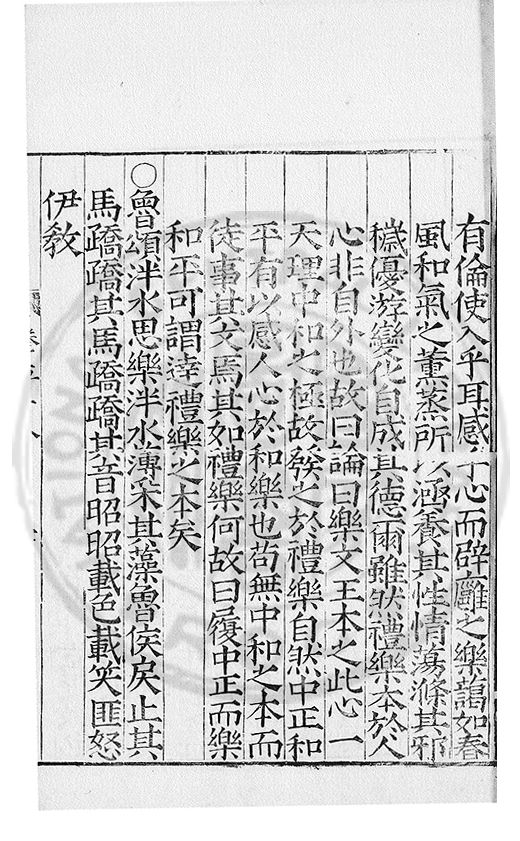 有倫使入乎耳感乎心而辟雝之樂藹如春
風和氣之薰蒸所以涵養其性情蕩滌其邪
穢優游變化自成其德爾雖然禮樂本於人
心非自外也故曰論曰樂文王本之此心一
天理中和之極故發之於禮樂自然中正和
平有以感人心於和樂也茍無中和之本而
徒事其文焉其如禮樂何故曰履中正而樂
和平可謂達禮樂之本矣
○魯頌泮水思樂泮水薄采其藻魯侯戾止其
馬蹻蹻其馬蹻蹻其音昭昭載色載笑匪怒
伊教